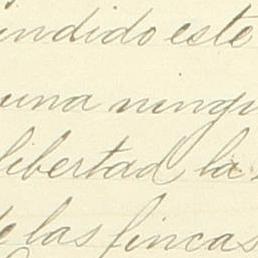 indido este
una ningu
libertad la
de las fincas